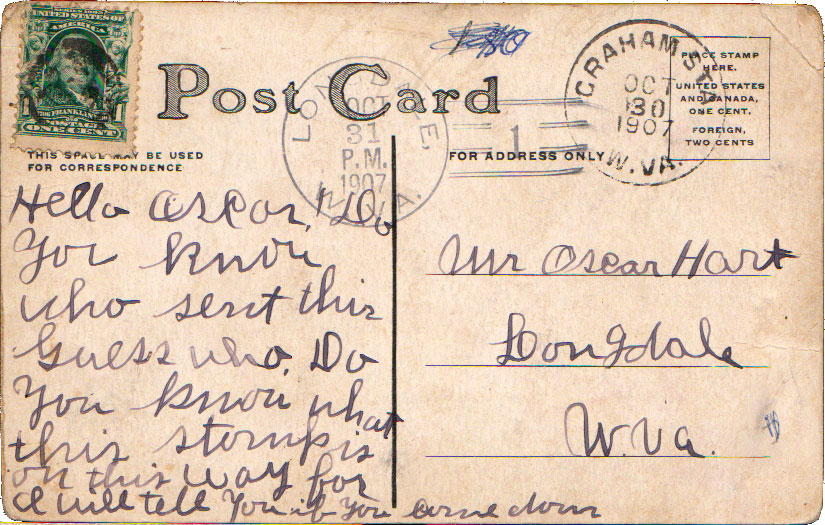 UNITED STATES OF
AMERICA
FRANKLIN
POSTAGE
ONE CENT
Post Card
GRAHAM STA.
OCT
30
1907
W. VA.
OCT
31
P.M.
1907
W. VA.
1
PLACE STAMP
HERE.
UNITED STATES
AND CANADA,
ONE CENT.
FOREIGN,
TWO CENTS
THIS SPACE MAY BE USED
FOR CORRESPONDENCE
FOR ADDRESS ONLY
Hello Oscar, Do
You know
who sent this
Guess who. Do
You know what
this stamp is
on this way for
I will tell You if You come down
Mr Oscar Hart
Longdale
W. Va.